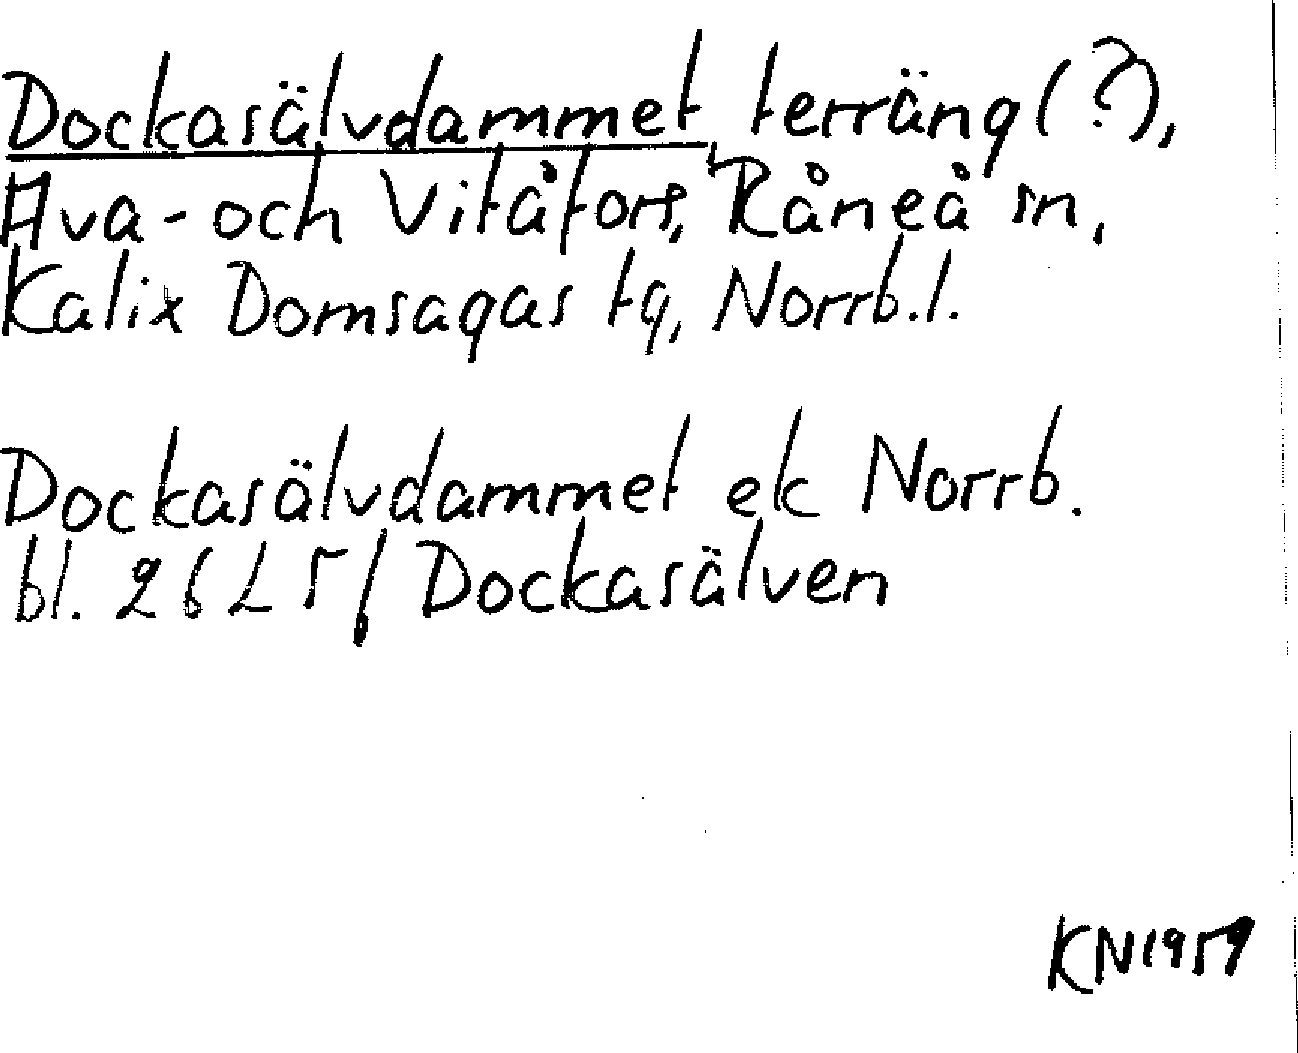 Dockasälvdammet terräng (?),
Ava- och Vitåfors, Råneå sn,
Kalix Domsagas tg, Norrb.l.
Dockasälvdammet ek Norrb.
bl. 26 L 5 f Dockasälven
KN1959